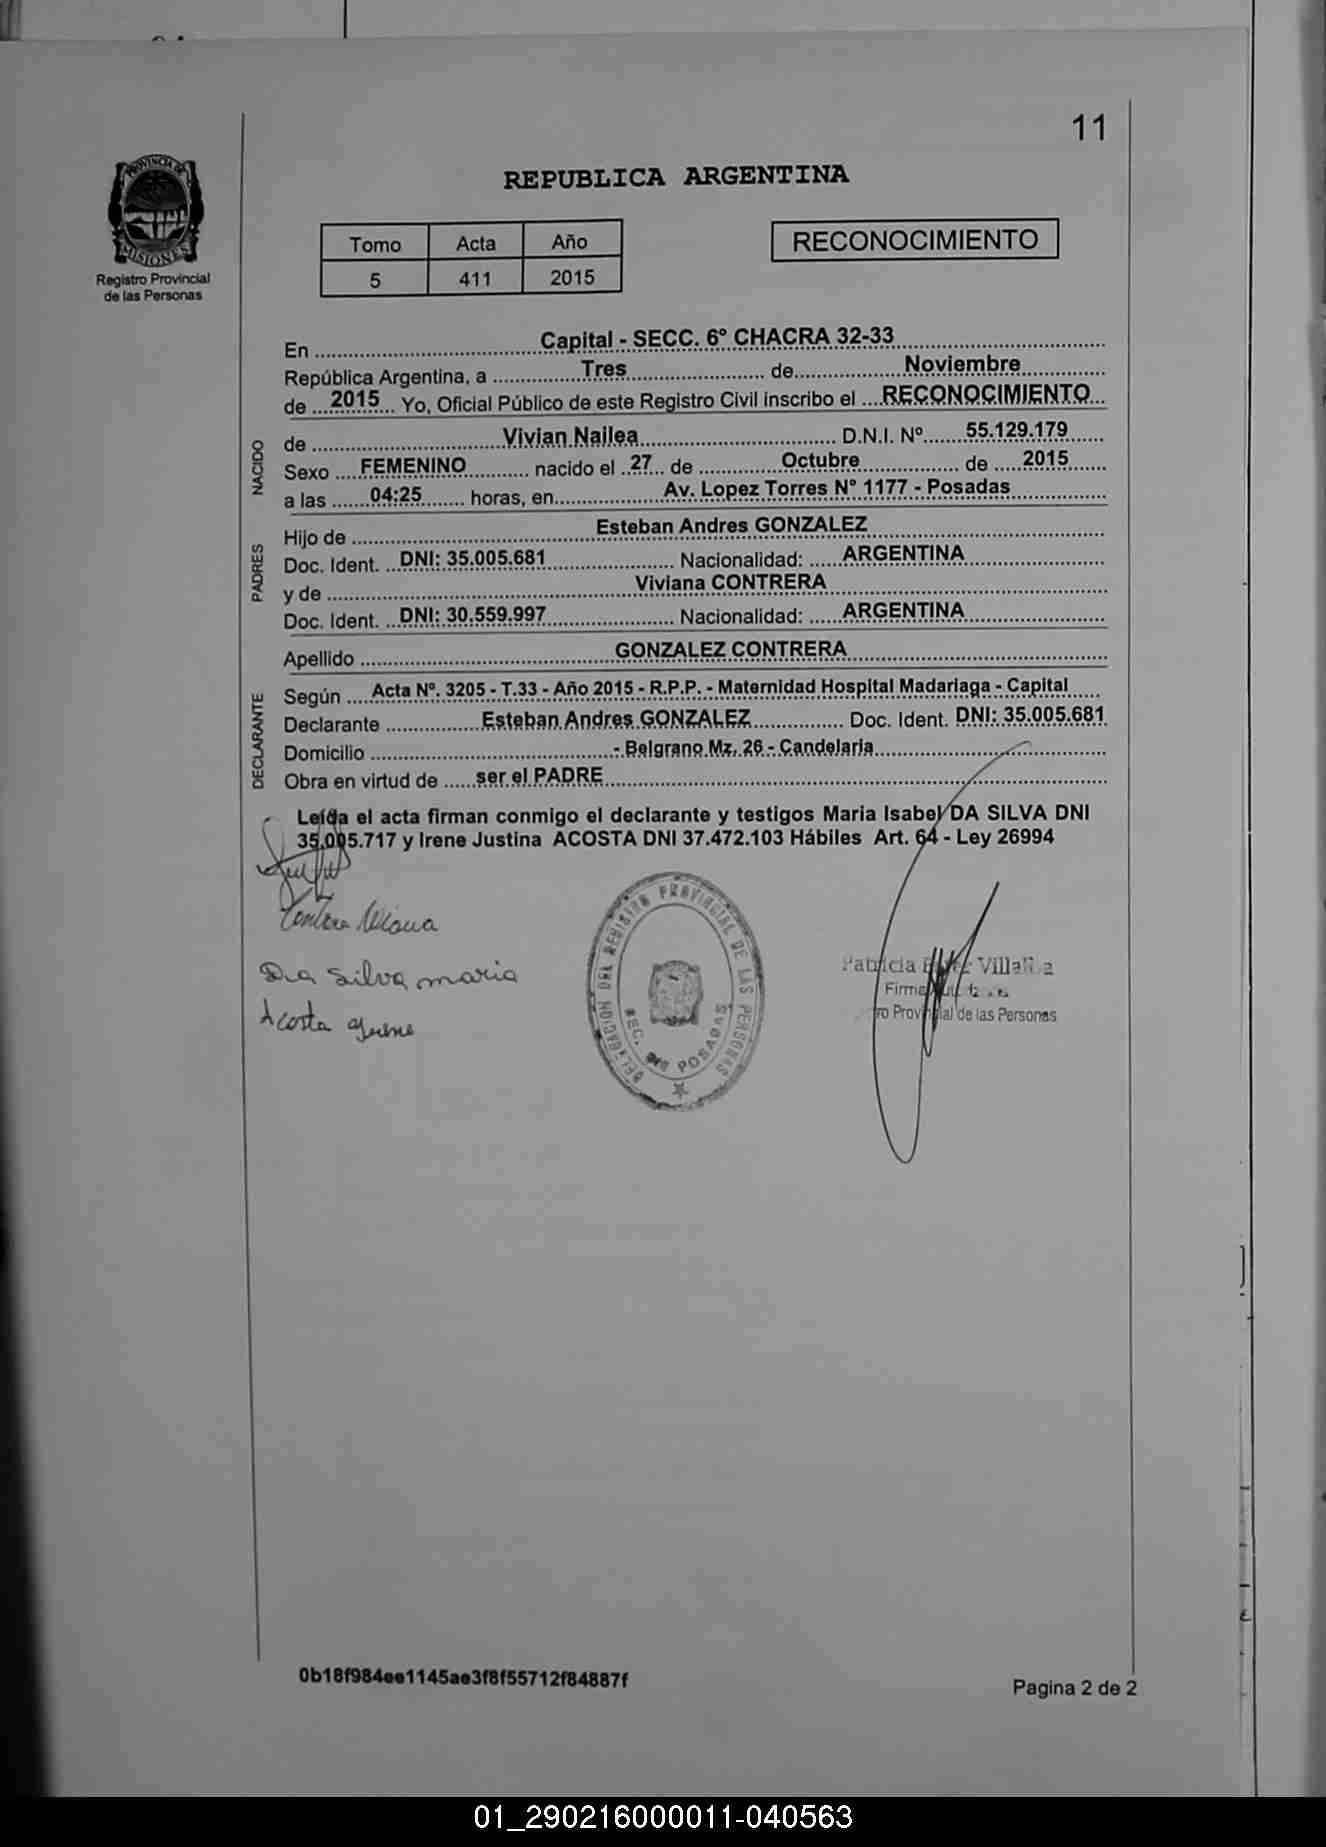 11
PROVINCIA DE
MISIONES
Registro Provincial
de las Personas
REPUBLICA ARGENTINA
Tomo Acta Año
5 411 2015
RECONOCIMIENTO
En Capital - SECC. 6° CHACRA 32-33
República Argentina, a Tres de Noviembre
de 2015 Yo, Oficial Público de este Registro Civil inscribo el RECONOCIMIENTO
NACIDO
de Vivian Nailea D.N.I. Nº 55.129.179
Sexo FEMENINO nacido el 27 de Octubre de 2015
a las 04:25 horas, en Av. Lopez Torres N° 1177 - Posadas
PADRES
Hijo de Esteban Andres GONZALEZ
Doc. Ident. DNI: 35.005.681 Nacionalidad: ARGENTINA
y de Viviana CONTRERA
Doc. Ident. DNI: 30.559.997 Nacionalidad: ARGENTINA
Apellido GONZALEZ CONTRERA
DECLARANTE
Según Acta Nº. 3205 - T.33 - Año 2015 - R.P.P. - Maternidad Hospital Madariaga - Capital
Declarante Esteban Andres GONZALEZ Doc. Ident. DNI: 35.005.681
Domicilio - Belgrano Mz. 26 - Candelaria
Obra en virtud de ser el PADRE
Leída el acta firman conmigo el declarante y testigos Maria Isabel DA SILVA DNI
35.005.717 y Irene Justina ACOSTA DNI 37.472.103 Hábiles Art. 64 - Ley 26994
Contrera Viviana
Da Silva maria
Acosta Irene
DELEGACION DEL REGISTRO PROVINCIAL DE LAS PERSONAS
SEC. POSADAS
Patricia Villalba
Firma
Provincial de las Personas
0b18f984ee1145ae3f8f55712f84887f
Pagina 2 de 2
01_290216000011-040563